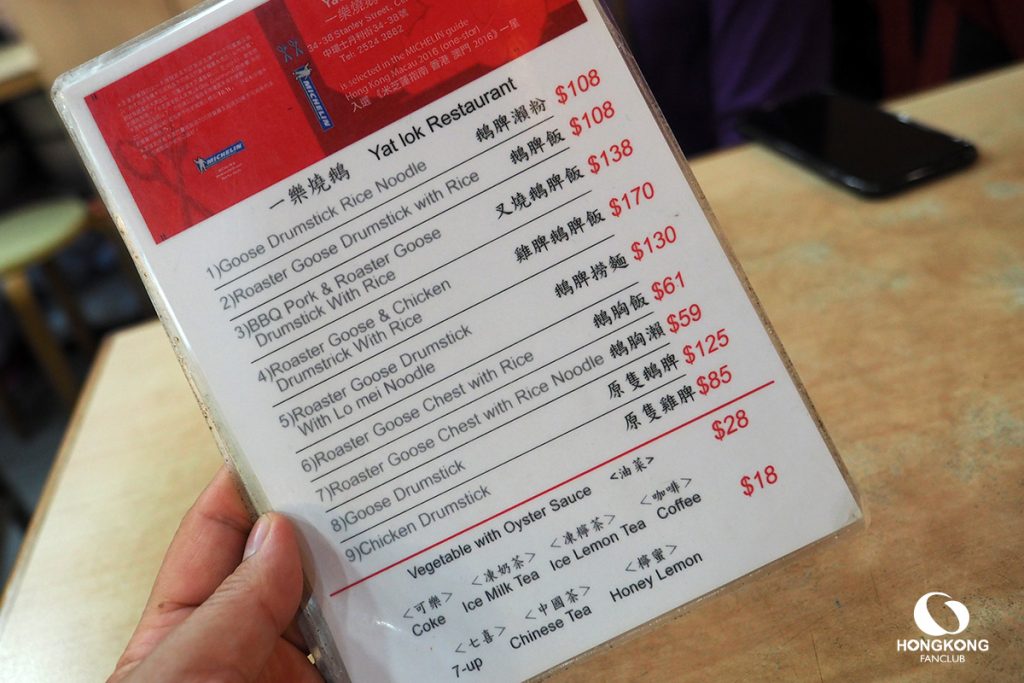 一樂燒鵝
34-38 Stanley Street,
中環士丹利街34-38號
Tel: 2524 3882
is selected in the MICHELIN guide
Hong Kong Macau 2016 (one-star)
入選 《米芝蓮指南 香港 澳門 2016》 一星
MICHELIN
MICHELIN
一樂燒鵝 Yat lok Restaurant
1)Goose Drumstick Rice Noodle 鵝髀瀨粉 $108
2)Roaster Goose Drumstick with Rice 鵝髀飯 $108
3)BBQ Pork & Roaster Goose
Drumstick With Rice 叉燒鵝髀飯 $138
4)Roaster Goose & Chicken
Drumstrick With Rice 雞髀鵝髀飯 $170
5)Roaster Goose Drumstick
With Lo mei Noodle 鵝髀撈麵 $130
6)Roaster Goose Chest with Rice 鵝胸飯 $61
7)Roaster Goose Chest with Rice Noodle 鵝胸瀨 $59
8)Goose Drumstick 原隻鵝髀 $125
9)Chicken Drumstick 原隻雞髀 $85
Vegetable with Oyster Sauce <油菜> $28
<可樂> <凍奶茶> <凍檸茶> <咖啡> $18
Coke Ice Milk Tea Ice Lemon Tea Coffee
<七喜> <中國茶> <檸蜜>
7-up Chinese Tea Honey Lemon
HONGKONG
FANCLUB